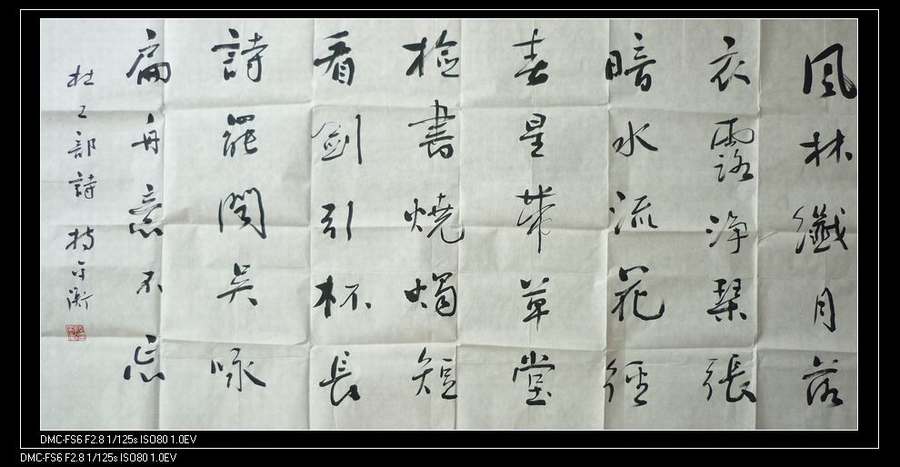 風林纖月落
衣露淨琴張
暗水流花徑
春星帶草堂
檢書燒燭短
看劍引杯長
詩罷聞吳咏
扁舟意不忘
杜工部詩
DMC-FS6 F2.8 1/125s ISO80 1.0EV
DMC-FS6 F2.8 1/125s ISO80 1.0EV